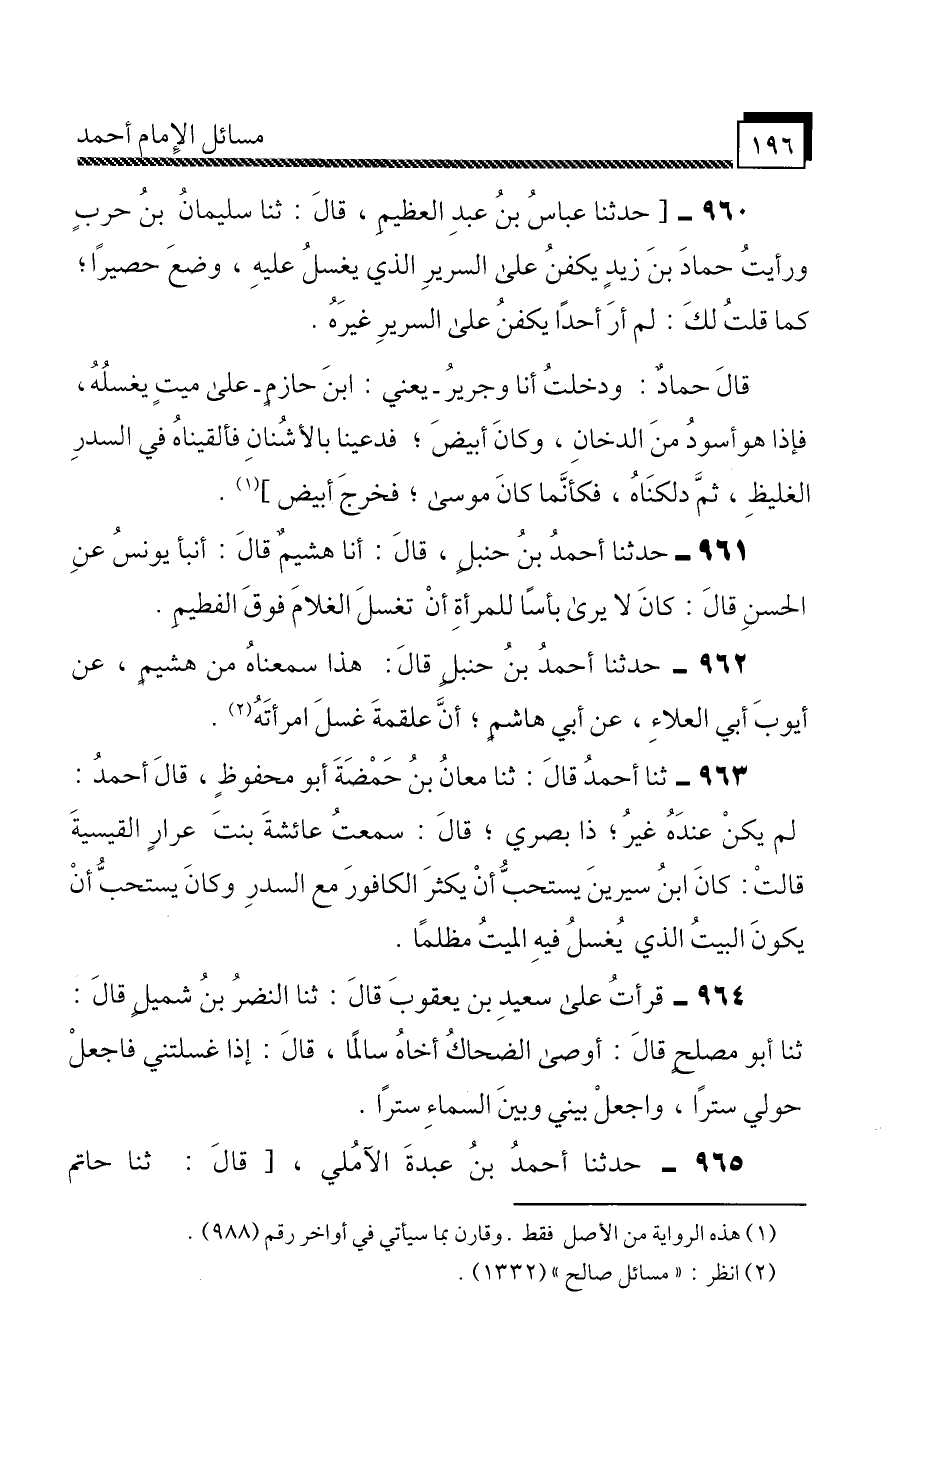 مسائل الإمام أحمد
١٩٦
٩٦٠ ـ [ حدثنا عباسُ بنُ عبدِ العظيمِ ، قالَ : ثنا سليمانُ بنُ حربٍ
ورأيتُ حمادَ بنَ زيدٍ يكفنُ على السريرِ الذي يغسلُ عليهِ ، وضعَ حصيرًا ؛
كما قلتُ لكَ : لم أرَ أحدًا يكفنُ على السريرِ غيرَهُ .
قالَ حمادٌ : ودخلتُ أنا وجريرُ ـ يعني : ابنَ حازمٍ ـ على ميتٍ يغسلُهُ ،
فإذا هو أسودُ منَ الدخانِ ، وكانَ أبيضَ ؛ فدعينا بالأشْنانِ فألقيناهُ في السدرِ
الغليظِ ، ثمَّ دلكنَاهُ ، فكأنَّما كانَ موسى ؛ فخرجَ أبيض ](١) .
٩٦١ ـ حدثنا أحمدُ بنُ حنبلٍ ، قالَ : أنا هشيمٌ قالَ : أنبأ يونسُ عنِ
الحسنِ قالَ : كانَ لا يرى بأسًا للمرأةِ أنْ تغسلَ الغلامَ فوقَ الفطيمِ .
٩٦٢ ـ حدثنا أحمدُ بنُ حنبلٍ قالَ : هذا سمعناهُ من هشيمٍ ، عن
أيوبَ أبي العلاءِ ، عن أبي هاشمٍ ؛ أنَّ علقمةَ غسلَ امرأتَهُ(٢) .
٩٦٣ ـ ثنا أحمدُ قالَ : ثنا معانُ بنُ حَمْضَةَ أبو محفوظٍ ، قالَ أحمدُ :
لم يكنْ عندَهُ غيرُ ؛ ذا بصري ؛ قالَ : سمعتُ عائشةَ بنتَ عرارٍ القيسيةَ
قالتْ : كانَ ابنُ سيرينَ يستحبُّ أنْ يكثرَ الكافورَ مع السدرِ وكانَ يستحبُّ أنْ
يكونَ البيتُ الذي يُغسلُ فيهِ الميتُ مظلمًا .
٩٦٤ ـ قرأتُ على سعيدِ بن يعقوبَ قالَ : ثنا النضرُ بنُ شميلٍ قالَ :
ثنا أبو مصلحٍ قالَ : أوصى الضحاكُ أخاهُ سالمًا ، قالَ : إذا غسلتني فاجعلْ
حولي سترًا ، واجعلْ بيني وبينَ السماءِ سترًا .
٩٦٥ ـ حدثنا أحمدُ بنُ عبدةَ الآمُلي ، [ قالَ : ثنا حاتم
(١) هذه الرواية من الأصل فقط . وقارن بما سيأتي في أواخر رقم (٩٨٨) .
(٢) انظر : « مسائل صالح » (١٣٣٢) .